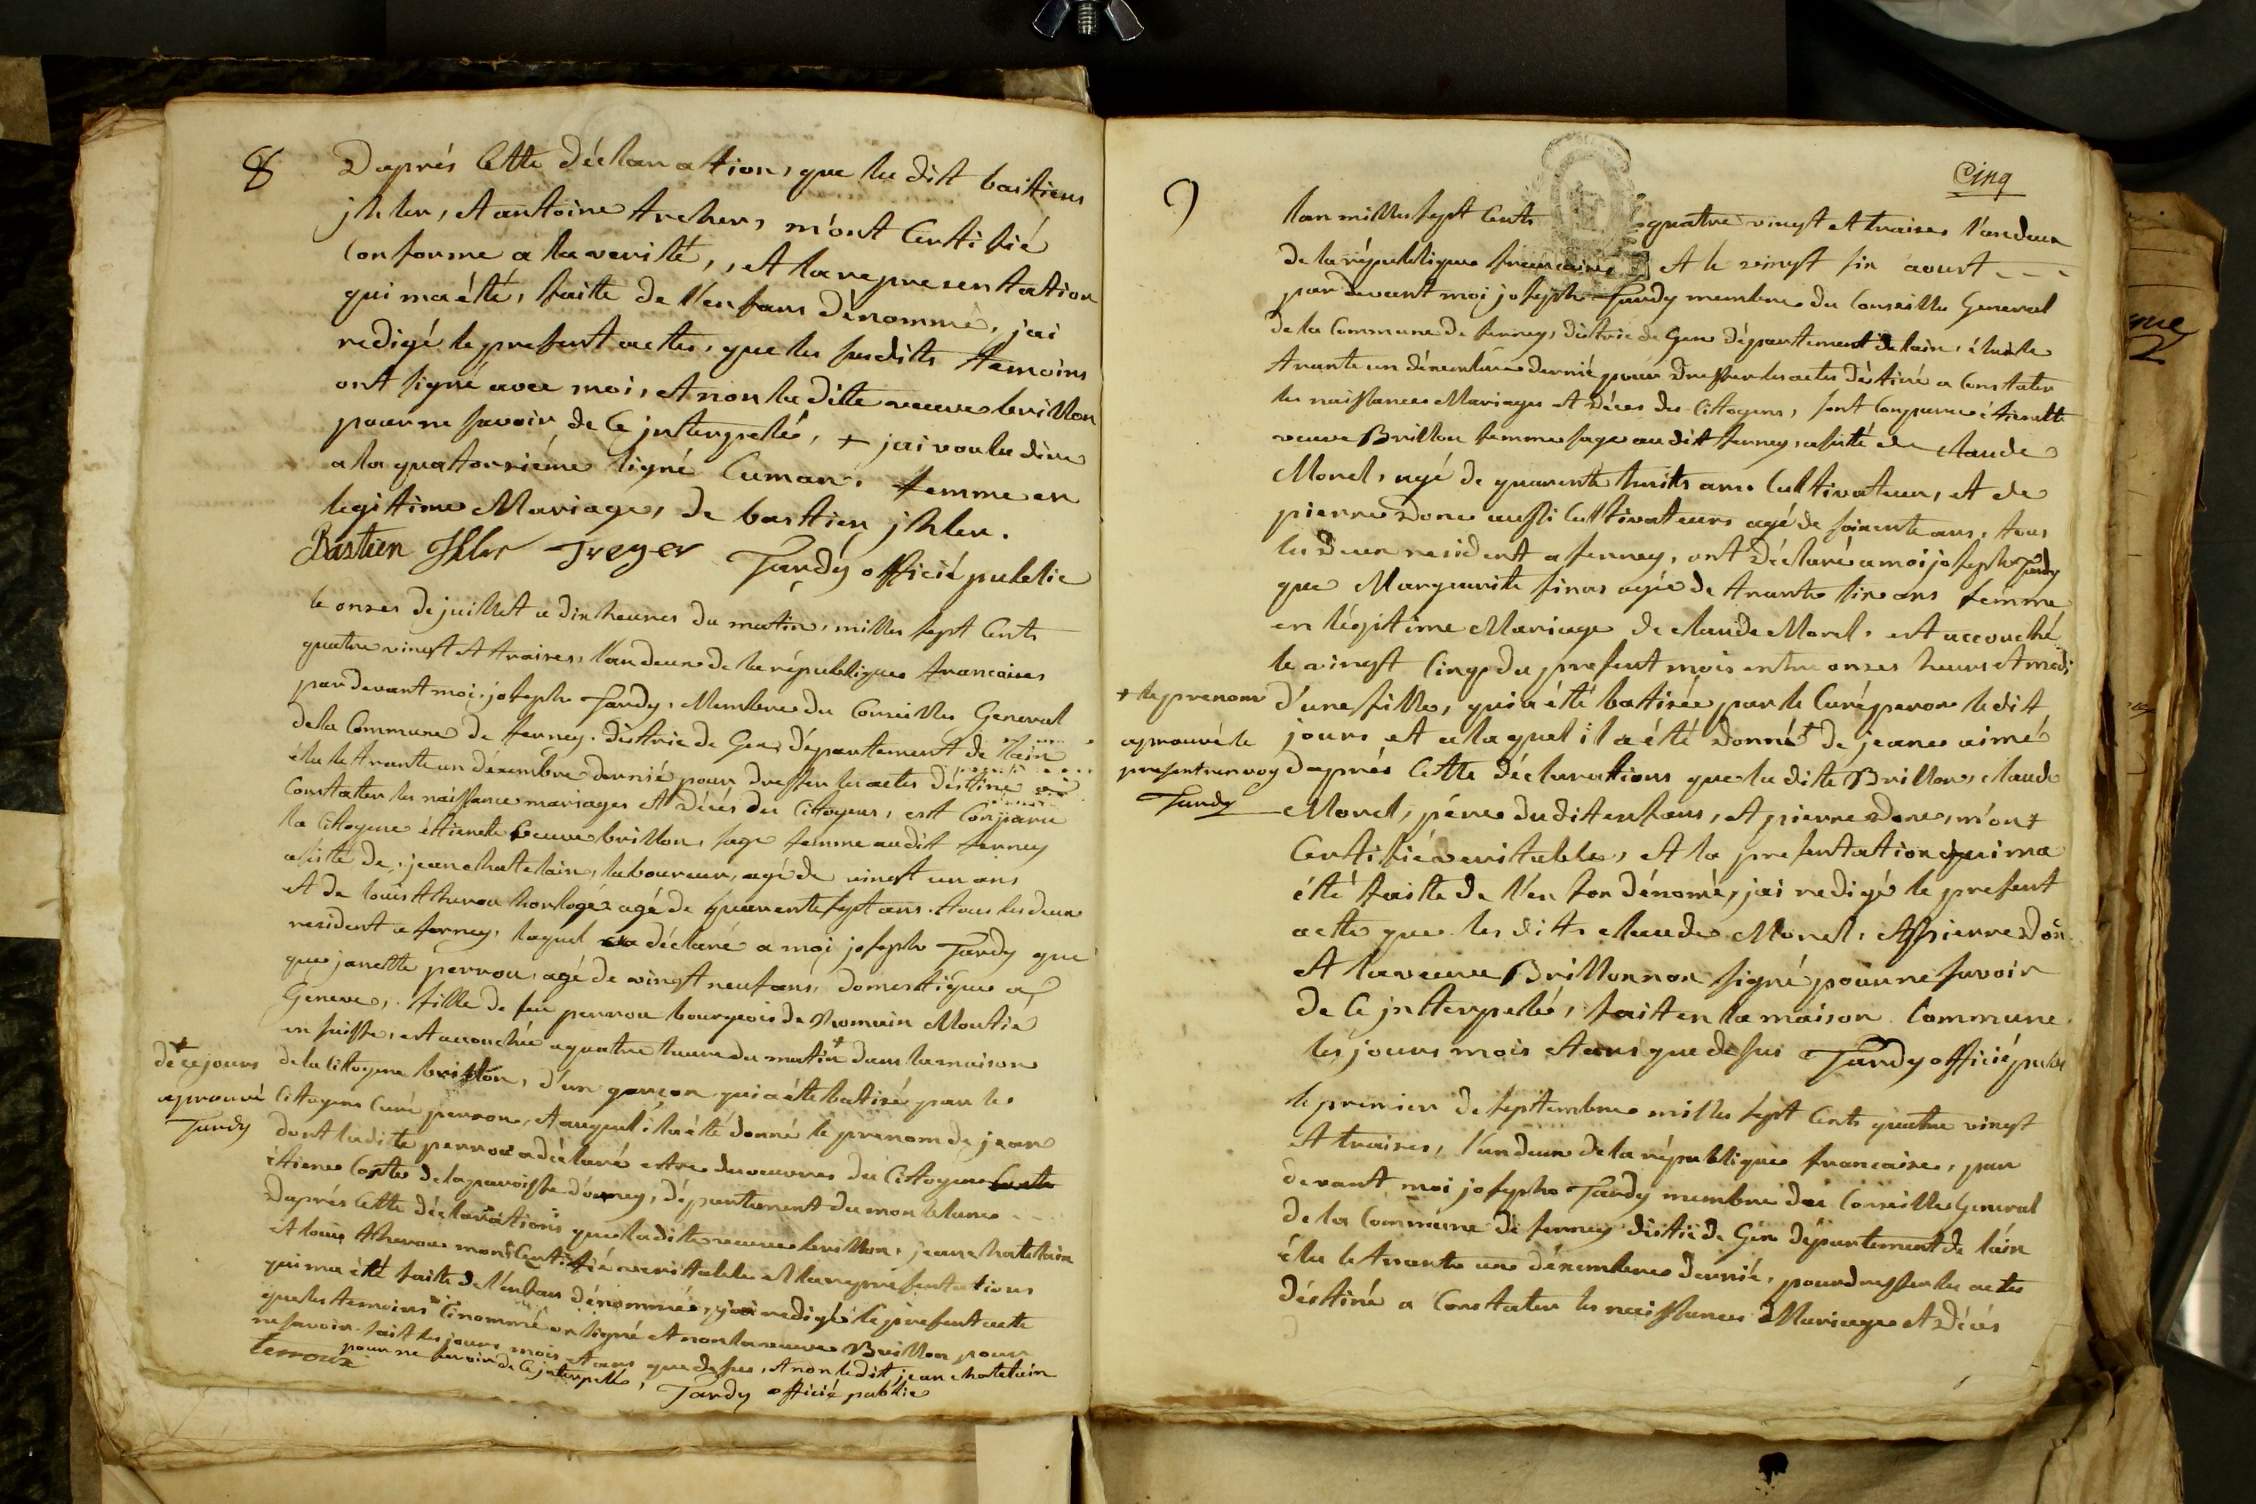 8
Daprés Cette déclaration, que ludit bastiens
jhler, et antoine trehers, m'ont Certifié
Conforme a la verité, et la representation
qui ma été, faitte de l'enfans dénommé, j'ai
redigé le present actes, que les susdits temoins
ont signé avec moi, et non la ditte veuve brillon
pour ne savoir de Ce interpellé, + jai voulu dire
a la quatorziéme ligne Cuman, femme en
legitime Mariage, de bastien jhler.
Bastien Ihler Treyer Tardy officié public
le onzes de juillet a dix heures du matin, milles sept Cents
quatre vingt et traizes, l'an deux de la république francaises
par devant moi, joseph Tardy, Membre du Conseilles General
de la Commune de ferney, distric de Gex, département de lain
élu le trante un décembre dernié pour dresser les actes déstiné a
Constater les naissance mariages et décés des Citoyens, est Conparu
la Citoyene étienete veuve brillon, sage femme audit ferney
asisté de, jean chatelain, laboureur, agé de vingt un ans
et de louis therou horlogé agé de quarente sept ans, tous les deux
resident a ferney, laquel a déclaré a moi joseph Tardy que
que janette perrou, agé de vingt neuf ans, domestique a
Geneve, fille de feu perrou bourgeois de Romain Moutié
en suisse, est accouchée a quatre heure du matin + dans la maison
+ de ce jours
aprouvé
Tardy
de la Citoyene brillon, d'un garçon, qui a été batisé par le
Citoyens Curé perron, et auquel il a été donné le prenom de jean
dont ladite perrou a déclaré estre des œuvres du Citoyen
étiene Coste de la paroisse d'orney, département du mon blanc
Daprés Cette déclarations que ladite veuve brillon, jean chatelain
et louis therou mont Certifié veritable et la representations
qui ma été faite de l'enfans dénommé, j'ai redigé le present acte
que les temoins Cinommé on signé et non la veuve Brillon pour
ne savoir fait les jours mois et ans que desus, et non ledit jean chatelain
pour ne savoir de Ce interpellé, Tardy officié public
terroux
Cinq
9
lan milles sept Cents quatre vingt et traizes l'an deux
de la république francaise et le vingt six aoust
par devant moi joseph Tardy membre du Conseilles General
de la Commune de ferney, distric de Gex département de lain, élu le
trante un décembre dernié pour dresser les actes déstiné a Constater
les naissances Mariages et décés des Citoyens, sont Conparue étienette
veuve Brillon femme sage audit ferney, asisté de claude
Morel, agé de quarente huits ans, Cultivateur, et de
pierre Done aussi Cultivateurs agé de soixente ans, tous
les deux resident a ferney, ont déclaré a moi joseph Tardy
que Marguerite finas agée de trante six ans femme
en légitime Mariage de claude Morel, est accouché
le vingt Cinq du present mois entre onzes heures et medi
d'une filles, qui a été batisée par le Curé peron ledit
jours et a laquel il a été donné + de jeane aimé
+ le prenom
aprouvé le
present renvoy
Tardy
daprés Cette déclarations que la dite Brillon, claude
Morel, pére dudit enfans, et pierre Done, m'ont
Certifié veritable, et la presentation qui ma
été faitte de l'enfan dénomé, j'ai redigé le present
acte que les dits claude Morel, et pierre Don
et la veuve Brillon non signé pour ne savoir
de Ce interpellé, fait en la maison Commune
les jours mois et ans que desus Tardy officié public
le premier de septembre milles sept Cents quatre vingt
et traizes, l'an deux de la république francaise, par
devant moi joseph Tardy membre du Conseilles General
de la Commune de ferney distric de Gex département de lain
élu le trante un décembre dernié, pour dresser les actes
déstiné a Constater les naissances Mariage et décés